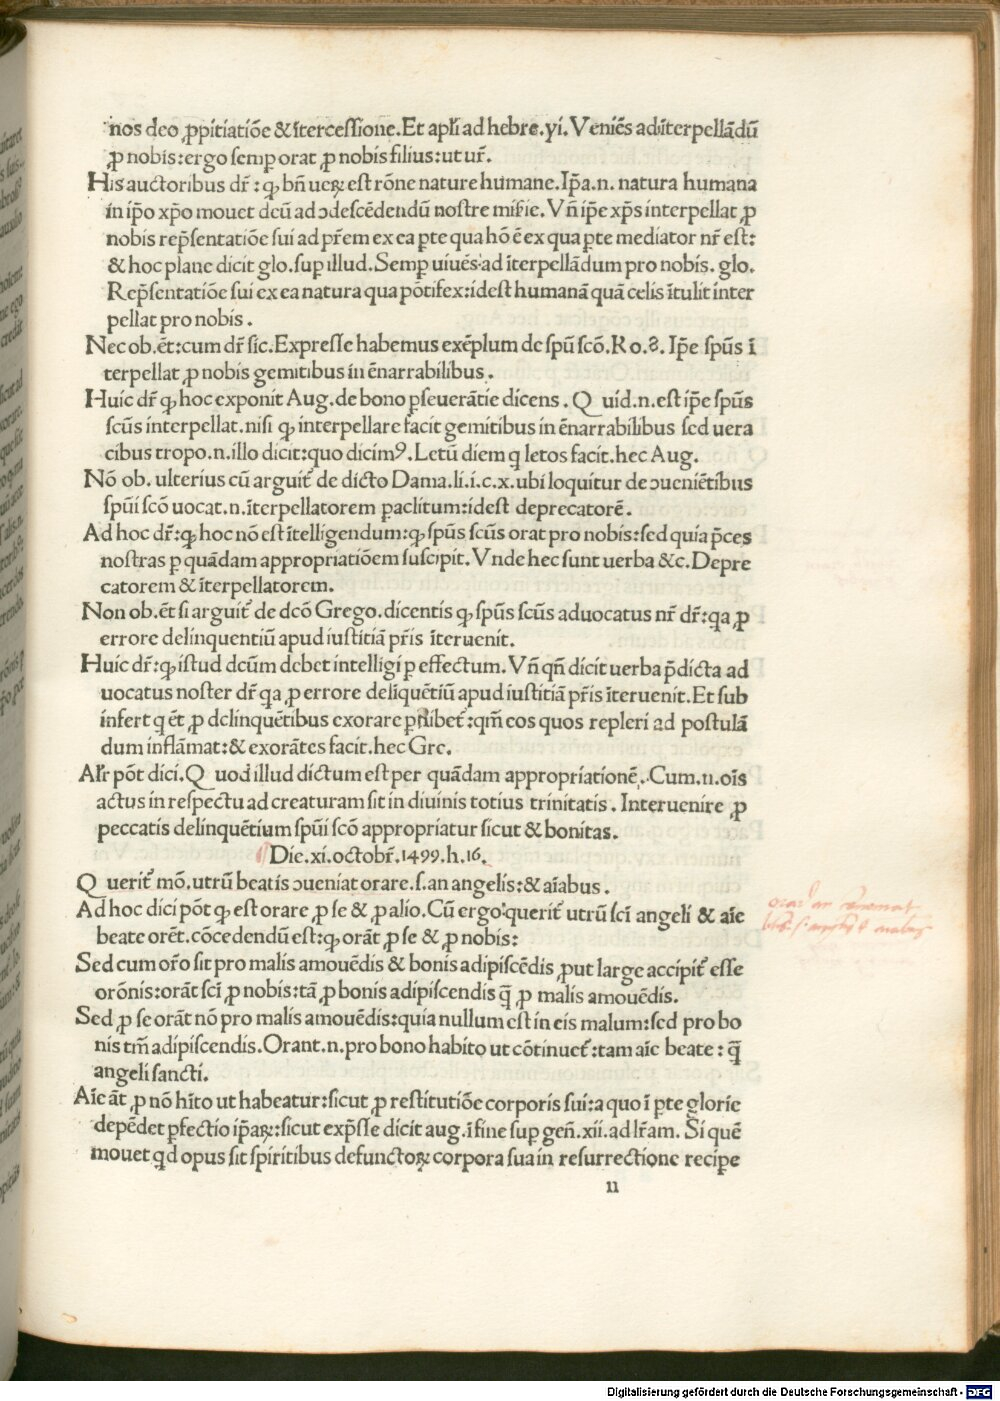 nos deo ꝓpitiatiōe & ītercessione. Et apłi ad hebre. yi. Veniēs ad īterpellādū
ꝓ nobis: ergo semp orat ꝓ nobis filius: ut ur̄.
His auctoribus dr̄: ꝙ bn̄ ueꝝ est rōne nature humane. Ip̄a .n. natura humana
in ip̄o xp̄o mouet deū ad ↄdescēdendū nostre mis̄ie. Vn̄ ip̄e xp̄s interpellat ꝓ
nobis rep̄sentatiōe sui ad pr̄em ex ea pte qua hō ē ex qua pte mediator nr̄ est:
& hoc plane dicit glo. sup illud. Semp uiuēs ad īterpellādum pro nobis. glo.
Rep̄sentatiōe sui ex ea natura qua pōtifex: idest humanā quā celis ītulit inter
pellat pro nobis.
Nec ob. ēt: cum dr̄ sic. Expresse habemus exēplum de spū scō. Ro. 8. Ip̄e spūs ī
terpellat ꝓ nobis gemitibus in ēnarrabilibus.
Huic dr̄ ꝙ hoc exponit Aug. de bono pseuerātie dicens. Quid .n. est ip̄e spūs
scūs interpellat. nisi ꝙ interpellare facit gemitibus in ēnarrabilibus sed uera
cibus tropo .n. illo dicit: quo dicim9. Letū diem q letos facit. hec Aug.
Nō ob. ulterius cū arguit̄ de dicto Dama. li. i. c. x. ubi loquitur de ↄueniētibus
spūi scō uocat .n. īterpellatorem paclitum: idest deprecatorē.
Ad hoc dr̄: ꝙ hoc nō est ītelligendum: ꝙ spūs scūs orat pro nobis: sed quia p̄ces
nostras p quādam appropriatiōem suscipit. Vnde hec sunt uerba &c. Depre
catorem & īterpellatorem.
Non ob. ēt si arguit̄ de dcō Grego. dicentis ꝙ spūs scūs aduocatus nr̄ dr̄: qa ꝓ
errore delinquentiū apud iustitiā pr̄is īteruenit.
Huic dr̄: ꝙ istud dcūm debet intelligi p effectum. Vn̄ qn̄ dicit uerba p̄dicta ad
uocatus noster dr̄ qa ꝓ errore deliquētiū apud iustitiā pr̄is īteruenit. Et sub
infert q ēt ꝓ delinquētibus exorare phibet̄: qm̄ eos quos repleri ad postulā
dum inflāmat: & exorātes facit. hec Gre.
Alr̄ pōt dici. Quod illud dictum est per quādam appropriationē. Cum .n. oīs
actus in respectu ad creaturam sit in diuinis totius trinitatis. Interuenire ꝓ
peccatis delinquētium spūi scō appropriatur sicut & bonitas.
Die. xi. octobr̄. 1499. h. 16.
Querit̄ mō. utrū beatis ↄueniat orare. s. an angelis: & aīabus.
Ad hoc dici pōt ꝙ est orare ꝓ se & ꝓ alio. Cū ergo querit̄ utrū scī angeli & aīe
beate orēt. cōcedendū est: ꝙ orāt ꝓ se & ꝓ nobis:
Sed cum or̄o sit pro malis amouēdis & bonis adipiscēdis ꝓut large accipit̄ esse
orōnis: orāt scī ꝓ nobis: tā ꝓ bonis adipiscendis q̄ ꝓ malis amouēdis.
Sed ꝓ se orāt nō pro malis amouēdis: quia nullum est in eis malum: sed pro bo
nis tm̄ adipiscendis. Orant .n. pro bono habito ut cōtinuet̄: tam aīe beate: q̄
angeli sancti.
Aīe āt ꝓ nō hīto ut habeatur: sicut ꝓ restitutiōe corporis sui: a quo ī pte glorie
depēdet pfectio ip̄aꝝ: sicut exp̄sse dicit aug. ī fine sup gen̄. xii. ad lr̄am. Si quē
mouet qd opus sit spiritibus defunctoꝝ corpora sua in resurrectione recipe
u
Digitalisierung gefördert durch die Deutsche Forschungsgemeinschaft - DFG